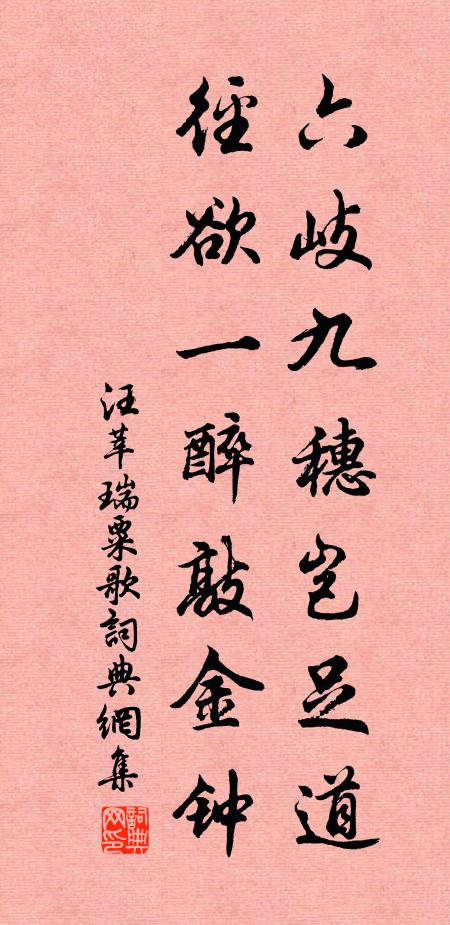 六岐九穗岂足道
径欲一醉敲金钟
汪莘瑞粟歌詞典網集
詞典網印